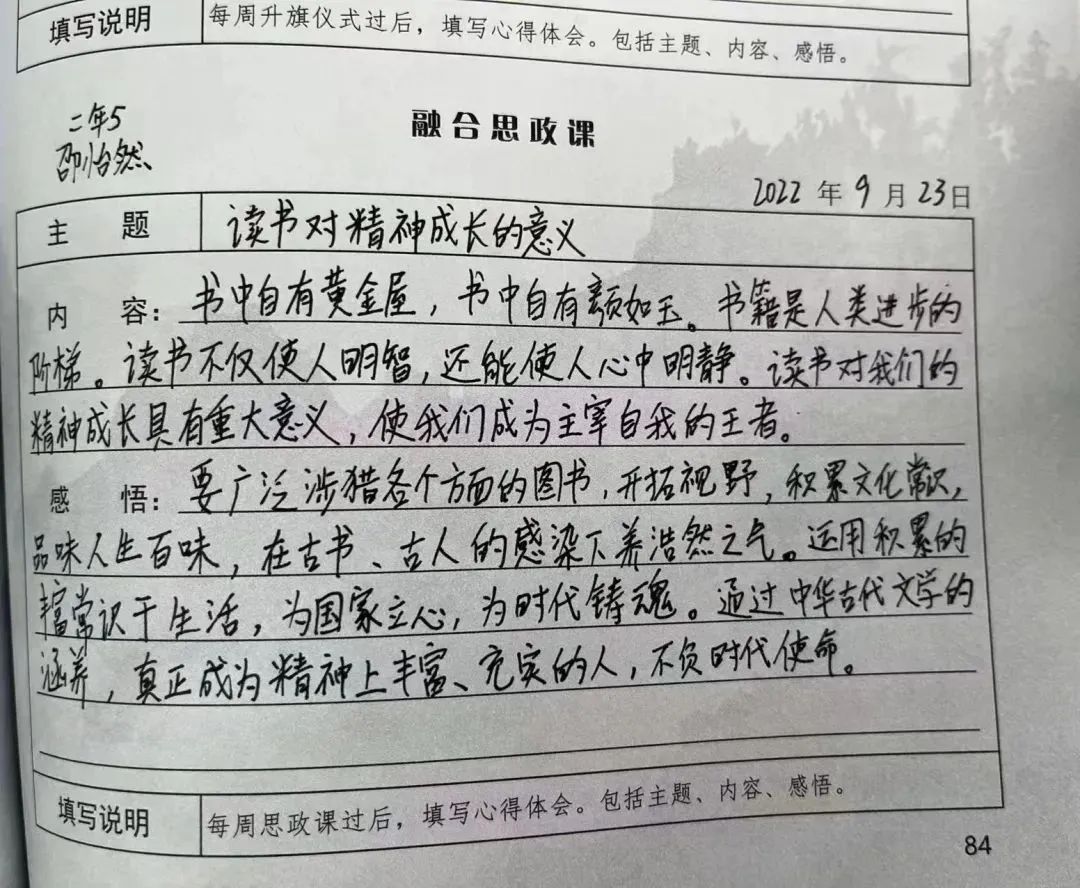 填写说明 每周升旗仪式过后，填写心得体会。包括主题、内容、感悟。
二年5
邵怡然
融合思政课
2022年9月23日
主题 读书对精神成长的意义
内容：书中自有黄金屋，书中自有颜如玉。书籍是人类进步的
阶梯。读书不仅使人明智，还能使人心中明静。读书对我们的
精神成长具有重大意义，使我们成为主宰自我的王者。
感悟：要广泛涉猎各个方面的图书，开拓视野，积累文化常识，
品味人生百味，在古书、古人的感染下养浩然之气。运用积累的
丰富常识于生活，为国家立心，为时代铸魂。通过中华古代文学的
涵养，真正成为精神上丰富、充实的人，不负时代使命。
填写说明 每周思政课过后，填写心得体会。包括主题、内容、感悟。
84